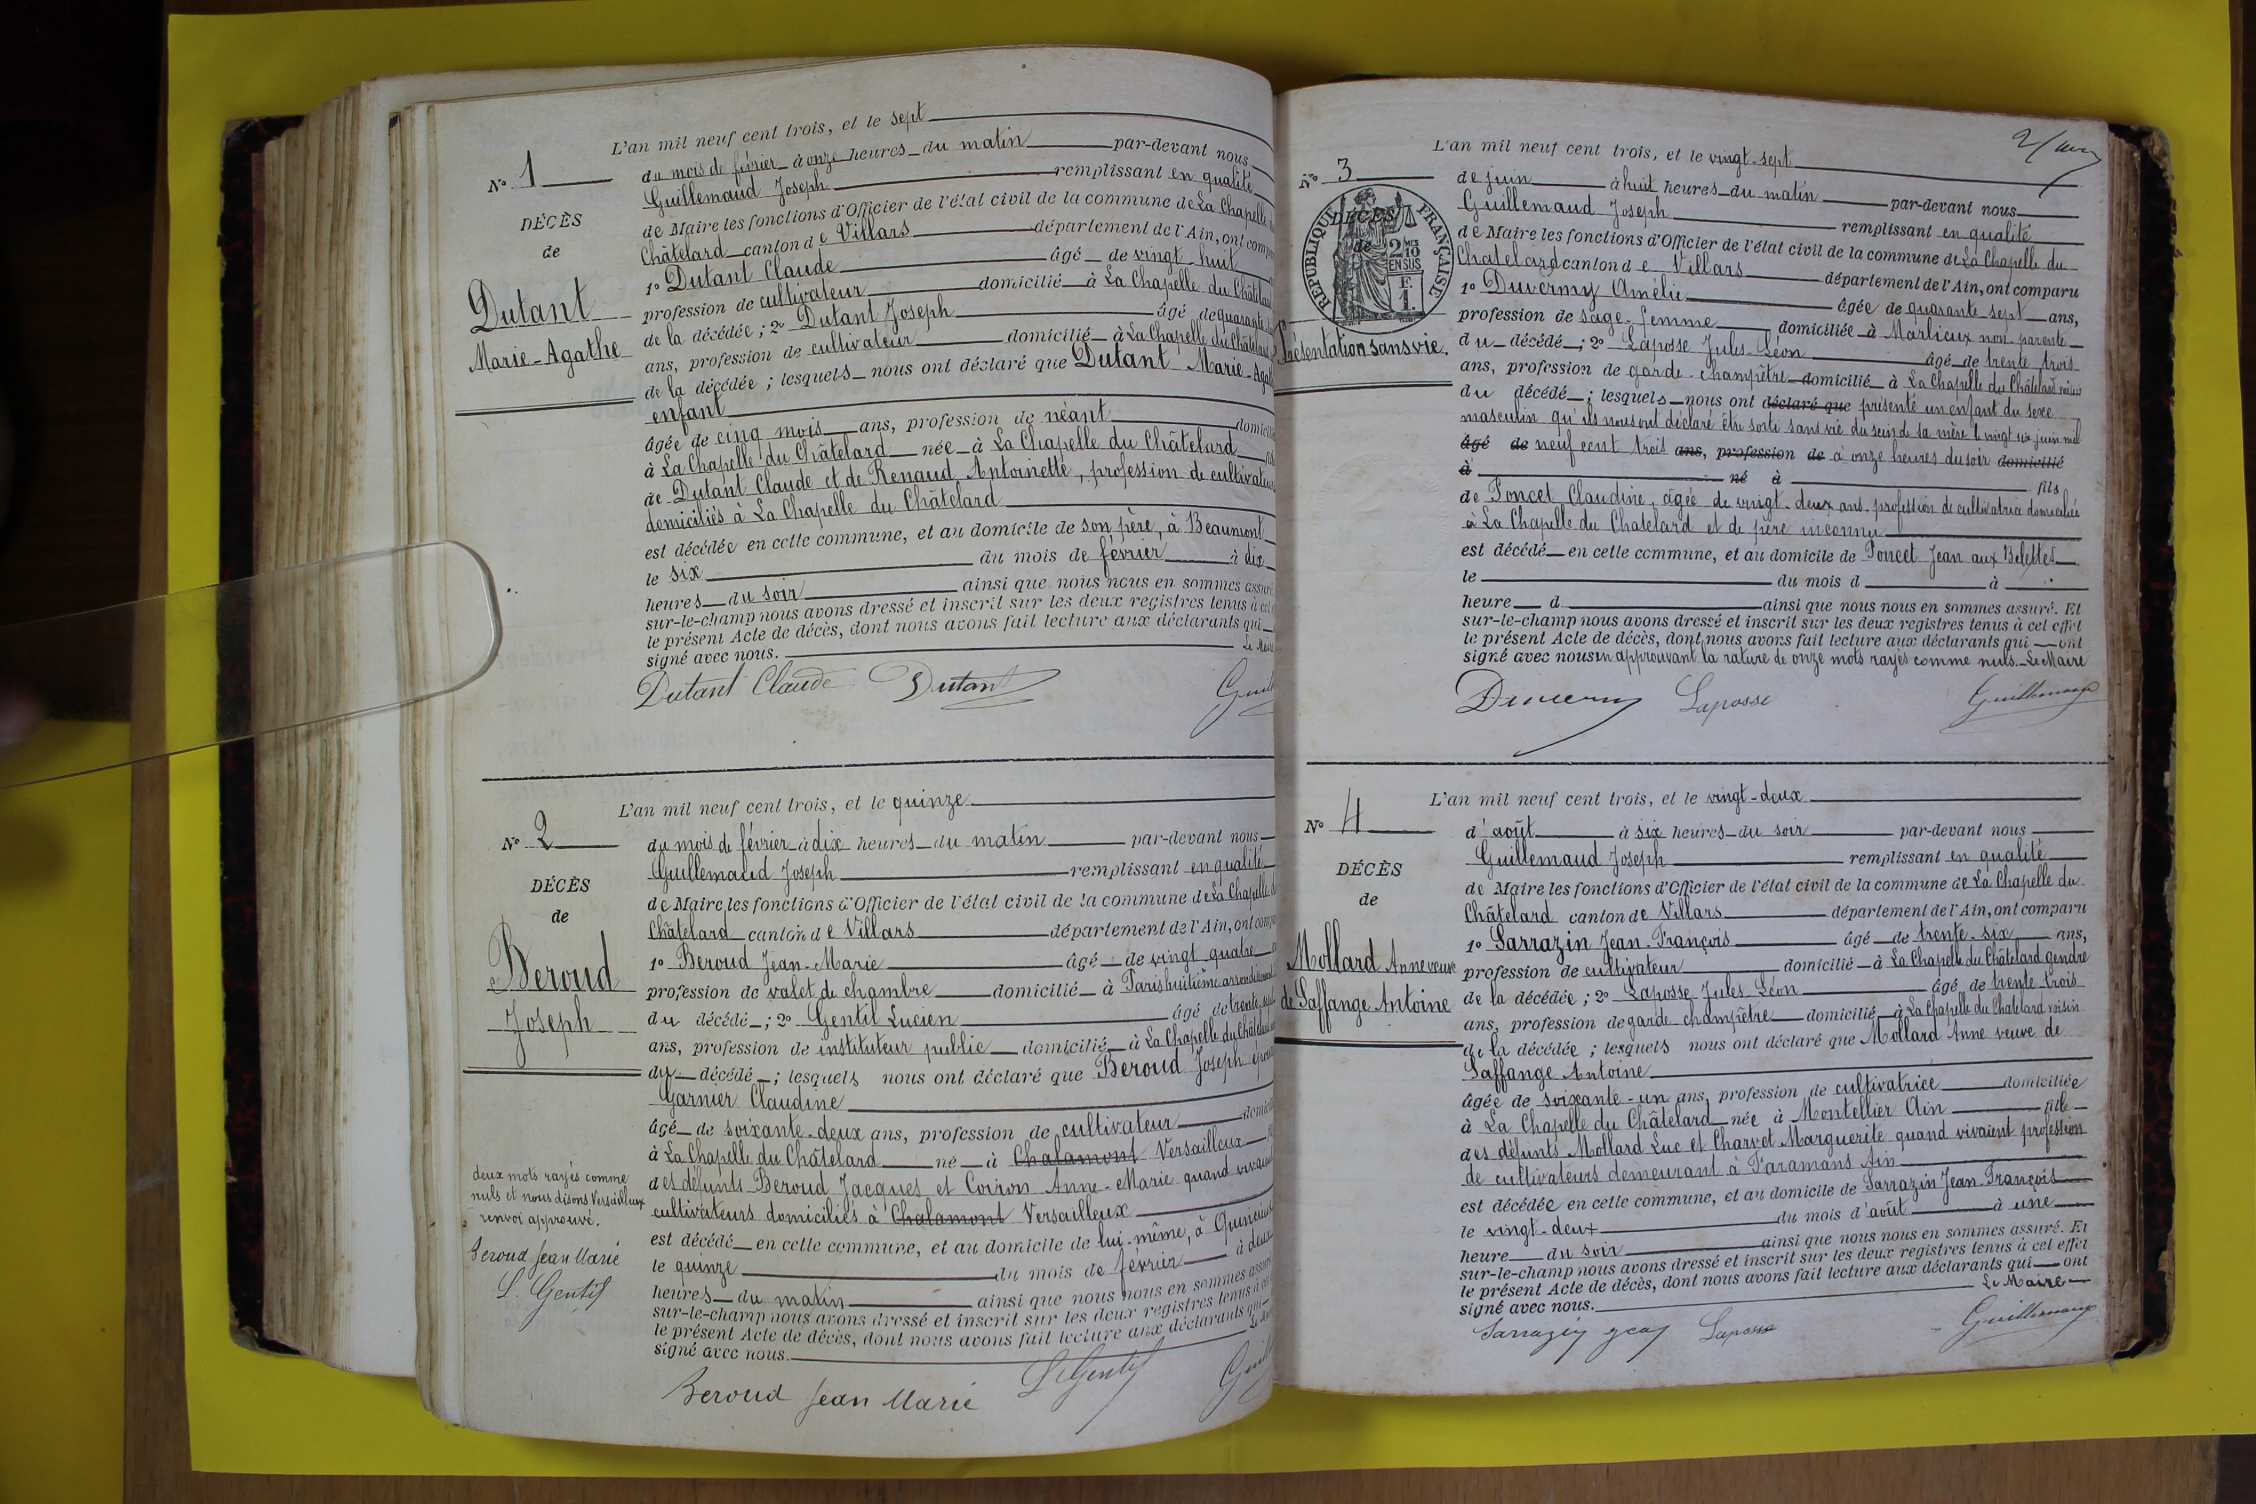 L'an mil neuf cent trois, et le sept
du mois de février à onze heures du matin par-devant nous
Guillemaud Joseph remplissant en qualité
de Maire les fonctions d'Officier de l'état civil de la commune de La Chapelle
Châtelard canton de Villars département de l'Ain, ont comp
1º Dutant Claude âgé de vingt-huit
profession de cultivateur domicilié à La Chapelle du Châtelard
de la décédée; 2º Dutant Joseph âgé de quarante
ans, profession de cultivateur domicilié à La Chapelle du Châtelard
de la décédée; lesquels nous ont déclaré que Dutant Marie-Aga
enfant
âgée de cinq mois ans, profession de néant domicil
à La Chapelle du Châtelard née à La Chapelle du Châtelard
de Dutant Claude et de Renaud Antoinette, profession de cultivateurs
domiciliés à La Chapelle du Châtelard
est décédée en cette commune, et au domicile de son père, à Beaumont
le six du mois de février à dix
heures du soir ainsi que nous nous en sommes assuré
sur-le-champ nous avons dressé et inscrit sur les deux registres tenus à cet
le présent Acte de décès, dont nous avons fait lecture aux déclarants qui
signé avec nous. Le Maire
Dutant Claude Dutant Guill
Nº 1
DÉCÈS
de
Dutant
Marie-Agathe
L'an mil neuf cent trois, et le quinze
du mois de février à dix heures du matin par-devant nous
Guillemaud Joseph remplissant en qualité
de Maire les fonctions d'Officier de l'état civil de la commune de La Chapelle d
Châtelard canton de Villars département de l'Ain, ont comp
1º Beroud Jean-Marie âgé de vingt-quatre
profession de valet de chambre domicilié à Paris huitième arrondissement
du décédé; 2º Gentil Lucien âgé de trente
ans, profession de instituteur public domicilié à La Chapelle du Châtelard
du décédé; lesquels nous ont déclaré que Beroud Joseph époux
Garnier Claudine
âgé de soixante-deux ans, profession de cultivateur domicil
à La Chapelle du Châtelard né à Chalamont Versailleux
des défunts Beroud Jacques et Coiron Anne-Marie quand vivaient
cultivateurs domiciliés à Chalamont Versailleux
est décédé en cette commune, et au domicile de lui-même, à
le quinze du mois de février à deux
heures du matin ainsi que nous nous en sommes assuré
sur-le-champ nous avons dressé et inscrit sur les deux registres tenus à cet
le présent Acte de décès, dont nous avons fait lecture aux déclarants qui
signé avec nous.
Beroud Jean Marie L. Gentil Guil
Nº 2
DÉCÈS
de
Beroud
Joseph
deux mots rayés comme
nuls et nous disons Versailleux
renvoi approuvé.
Beroud Jean Marie
L. Gentil
2
L'an mil neuf cent trois, et le vingt-sept
de juin à huit heures du matin par-devant nous
Guillemaud Joseph remplissant en qualité
de Maire les fonctions d'Officier de l'état civil de la commune de La Chapelle du
Châtelard canton de Villars département de l'Ain, ont comparu
1º Duverny Amélie âgée de quarante-sept ans,
profession de sage-femme domiciliée à Marlieux non parente
du décédé; 2º Laposse Jules-Léon âgé de trente trois
ans, profession de garde-champêtre domicilié à La Chapelle du Châtelard voisin
du décédé; lesquels nous ont déclaré que présenté un enfant du sexe
masculin qu'ils nous ont déclaré être sorti sans vie du sein de sa mère le vingt six juin mil
âgé de neuf cent trois ans, profession de à onze heures du soir domicilié
à né à fils
de Poncet Claudine, âgée de vingt-deux ans, profession de cultivatrice domiciliée
à La Chapelle du Chatelard et de père inconnu
est décédé en cette commune, et au domicile de Poncet Jean aux Belettes
le du mois d à
heure d ainsi que nous nous en sommes assuré. Et
sur-le-champ nous avons dressé et inscrit sur les deux registres tenus à cet effet
le présent Acte de décès, dont nous avons fait lecture aux déclarants qui ont
signé avec nous en approuvant la rature de onze mots rayés comme nuls. Le Maire
Duverny Laposse Guillemaud
Nº 3
DÉCÈS
de
RÉPUBLIQUE FRANÇAISE
2 MES
10
EN SUS
F.
1.
Présentation sans vie.
L'an mil neuf cent trois, et le vingt-deux
d'août à six heures du soir par-devant nous
Guillemaud Joseph remplissant en qualité
de Maire les fonctions d'Officier de l'état civil de la commune de La Chapelle du
Châtelard canton de Villars département de l'Ain, ont comparu
1º Sarrazin Jean-François âgé de trente-six ans,
profession de cultivateur domicilié à La Chapelle du Châtelard gendre
de la décédée; 2º Laposse Jules Léon âgé de trente trois
ans, profession de garde champêtre domicilié à La Chapelle du Chatelard voisin
de la décédée; lesquels nous ont déclaré que Mollard Anne veuve de
Saffange Antoine
âgée de soixante-un ans, profession de cultivatrice domiciliée
à La Chapelle du Châtelard née à Montellier Ain fille
des défunts Mollard Luc et Charvet Marguerite quand vivaient profession
de cultivateurs demeurant à Faramans Ain
est décédée en cette commune, et au domicile de Sarrazin Jean-François
le vingt-deux du mois d'août à une
heure du soir ainsi que nous nous en sommes assuré. Et
sur-le-champ nous avons dressé et inscrit sur les deux registres tenus à cet effet
le présent Acte de décès, dont nous avons fait lecture aux déclarants qui ont
signé avec nous. Le Maire
Sarrazin Jean Laposse Guillemaud
Nº 4
DÉCÈS
de
Mollard Anne veuve
de Saffange Antoine